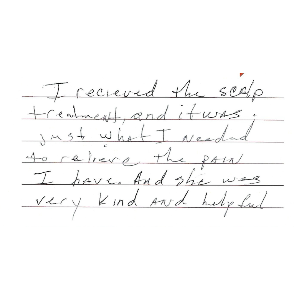 I recieved the scalp
treatment, and it was.
just what I needed
to relieve the PAIN
I have. And she was
very kind AND helpful